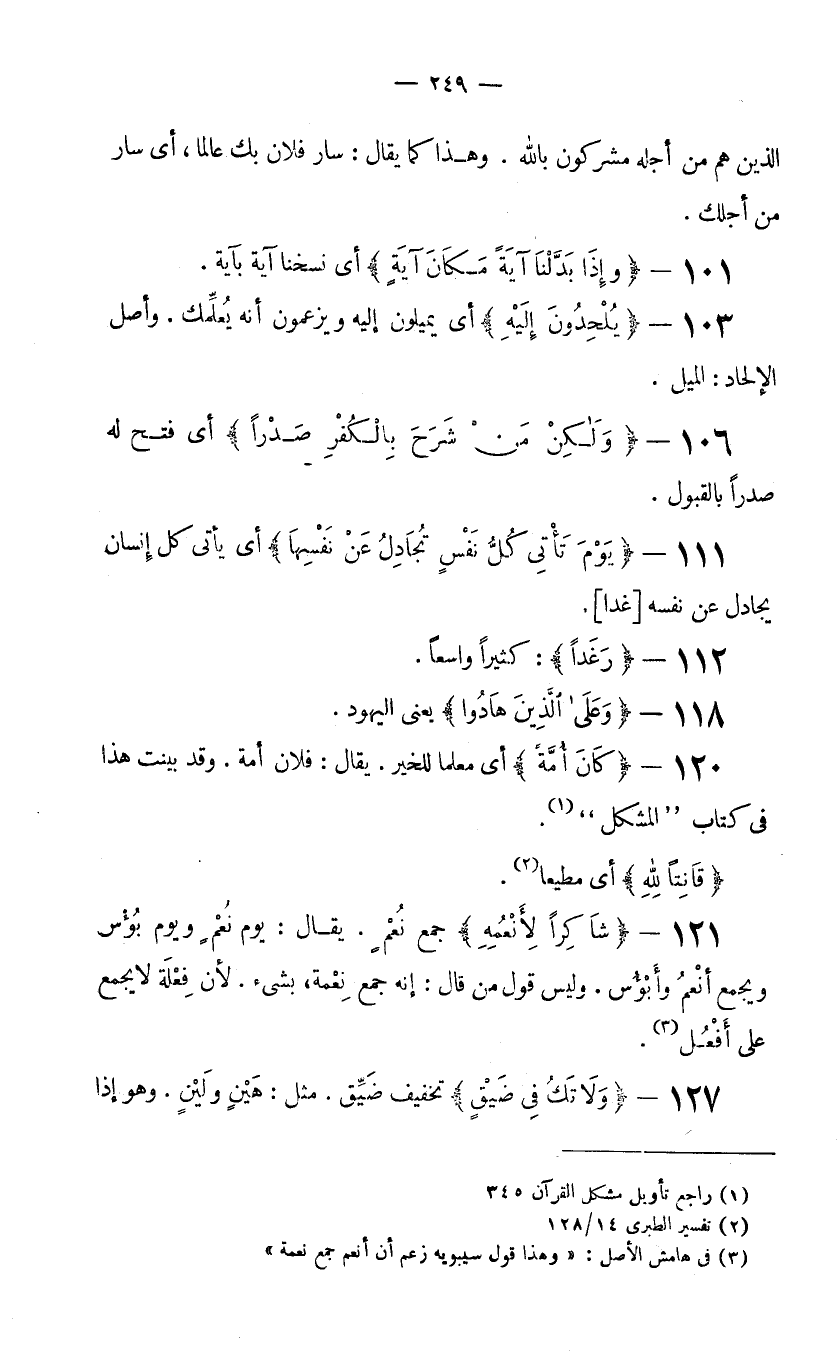 — ٢٤٩ —
الذين هم من أجله مشركون بالله . وهـذا كما يقال : سار فلان بك عالما ، أى سار
من أجلك .
١٠١ — ﴿ وإِذَا بَدَّلْنَا آيَةً مَـكَانَ آيَةٍ ﴾ أى نسخنا آية بآية .
١٠٣ — ﴿ يُلْحِدُونَ إِلَيْهِ ﴾ أى يميلون إليه ويزعمون أنه يُعلِّمك . وأصل
الإلحاد : الميل .
١٠٦ — ﴿ وَلَٰـكِنْ مَنْ شَرَحَ بِالْـكُفْرِ صَـدْراً ﴾ أى فتـح له
صدراً بالقبول .
١١١ — ﴿ يَوْمَ تَأْتِى كُلُّ نَفْسٍ تُجَادِلُ عَنْ نَفْسِهَا ﴾ أى يأتى كل إنسان
يجادل عن نفسه [غدا].
١١٢ — ﴿ رَغَداً ﴾ : كثيراً واسعاً .
١١٨ — ﴿ وَعَلَى ٱلَّذِينَ هَادُوا ﴾ يعنى اليهود .
١٢٠ — ﴿ كَانَ أُمَّةً ﴾ أى معلما للخير . يقال : فلان أمة . وقد بينت هذا
فى كتاب ”المشكل“ (١).
﴿ قَانِتاً لِلهِ ﴾ أى مطيعا(٢) .
١٢١ — ﴿ شَاكِراً لِأَنْعُمِهِ ﴾ جمع نُعْمٍ . يقـال : يوم نُعْمٍ ويوم بُؤْس
ويجمع أنْعمُ وأَبْؤُس . وليس قول من قال : إنه جمع نِعْمة، بشىء . لأن فِعْلَة لا يجمع
على أَفْعُـل(٣) .
١٢٧ — ﴿ وَلَا تَكُ فِى ضَيْقٍ ﴾ تخفيف ضَيِّق . مثل : هَيْنٍ ولَيْنٍ . وهو إذا
(١) راجع تأويل مشكل القرآن ٣٤٥
(٢) تفسير الطبرى ١٢٨/١٤
(٣) فى هامش الأصل : « وهذا قول سيبويه زعم أن أنعم جمع نعمة »